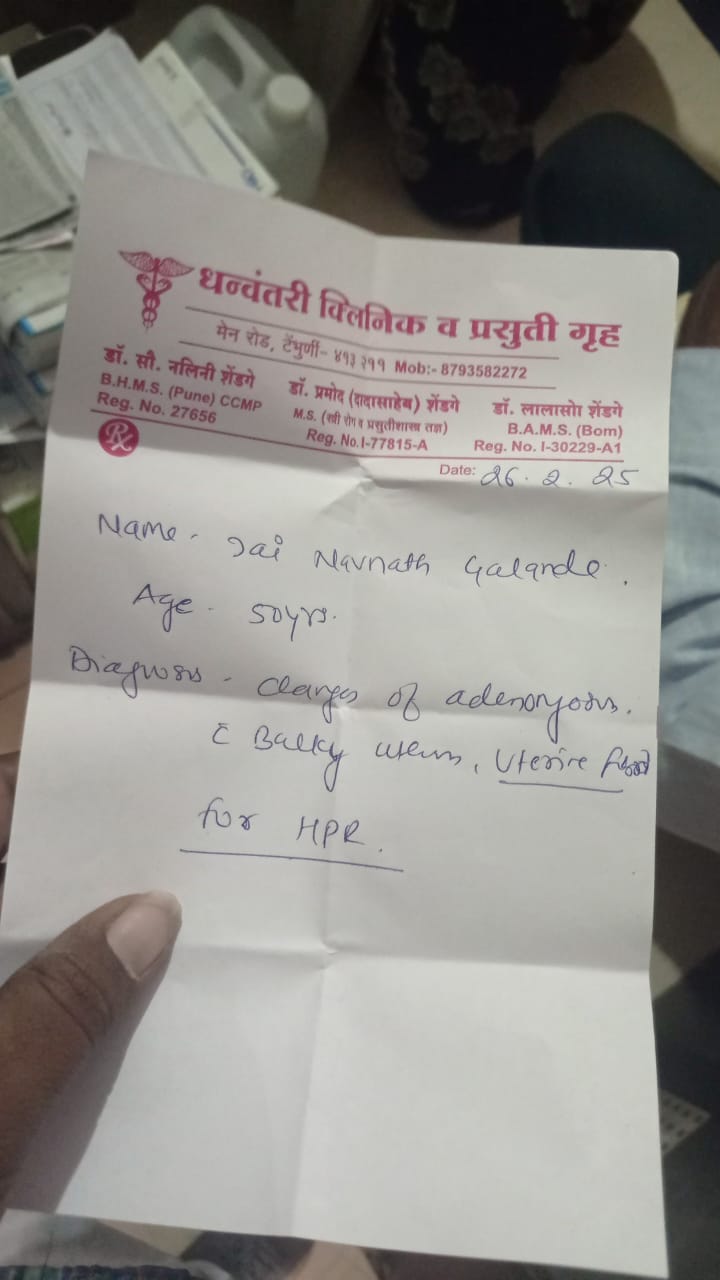 धन्वंतरी क्लिनिक व प्रसुती गृह
मेन रोड, टेंभुर्णी- ४१३ २११ Mob:- 8793582272
डॉ. सौ. नलिनी शेंडगे
B.H.M.S. (Pune) CCMP
Reg. No. 27656
डॉ. प्रमोद (दादासाहेब) शेंडगे
M.S. (स्त्री रोग व प्रसुतीशास्त्र तज्ञ)
Reg. No.I-77815-A
डॉ. लालासो शेंडगे
B.A.M.S. (Bom)
Reg. No. I-30229-A1
Rx
Date: 26.2.25
Name - Jai Navnath Galande.
Age - 50yrs.
Diagnosis - of
Bulky uterus, Uterine
for HPR.